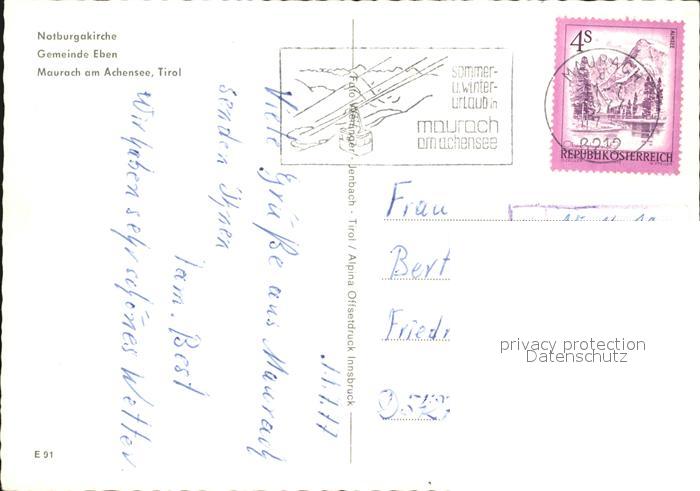 Notburgakirche
Gemeinde Eben
Maurach am Achensee, Tirol
sommer-
u.winter-
urlaub in
maurach
am achensee
4s
ALMSEE
MAURACH
6212
REPUBLIK ÖSTERREICH
Foto Weringer Jenbach - Tirol / Alpina Offsetdruck Innsbruck
1.1.77
Viele Grüße aus Maurach
senden Ihnen
Fam. Best
Wir haben sehr schönes Wetter.
Frau
Bert
Friedr
privacy protection
Datenschutz
E 91